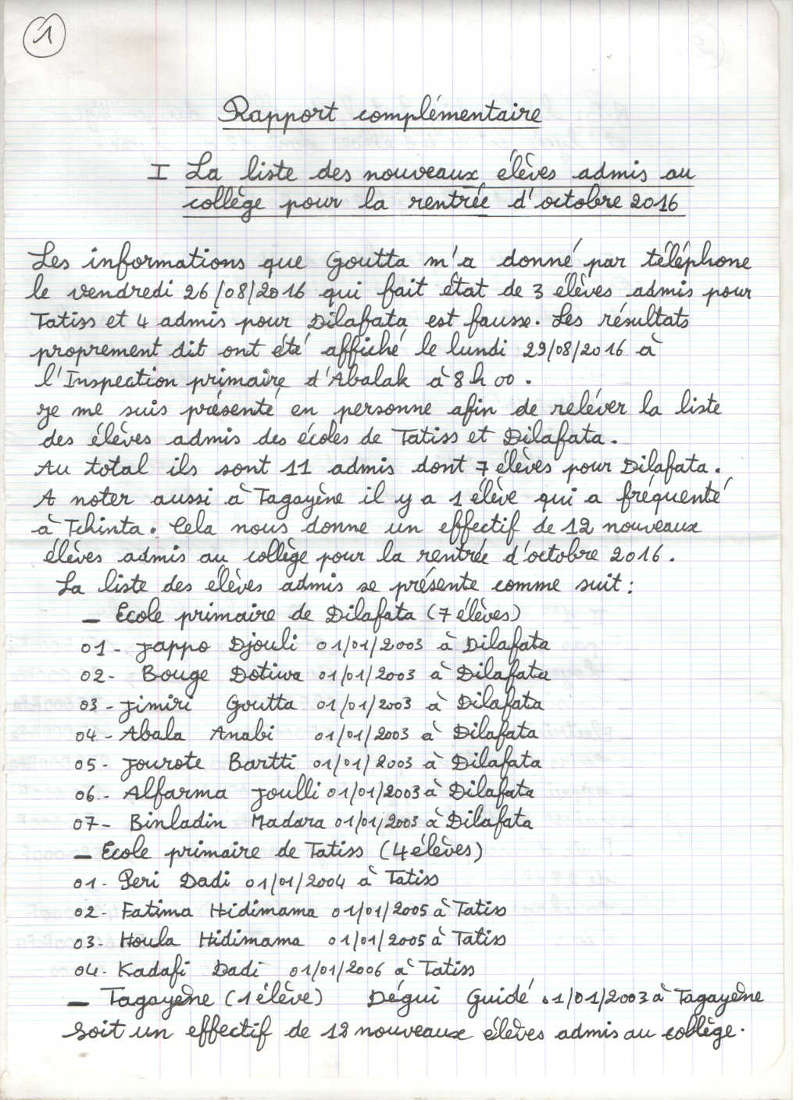 1
Rapport complémentaire
I La liste des nouveaux élèves admis au
collège pour la rentrée d'octobre 2016
Les informations que Goutta m'a donné par téléphone
le vendredi 26/08/2016 qui fait état de 3 élèves admis pour
Tatiss et 4 admis pour Dilafata est fausse. Les résultats
proprement dit ont été affiché le lundi 29/08/2016 à
l'Inspection primaire d'Abalak à 8h 00.
Je me suis présenté en personne afin de reléver la liste
des élèves admis des écoles de Tatiss et Dilafata.
Au total ils sont 11 admis dont 7 élèves pour Dilafata.
A noter aussi à Tagayène il y a 1 élève qui a fréquenté
à Tchinta. Cela nous donne un effectif de 12 nouveaux
élèves admis au collège pour la rentrée d'octobre 2016.
La liste des élèves admis se présente comme suit :
– Ecole primaire de Dilafata (7 élèves)
01- Jappo Djouli 01/01/2003 à Dilafata
02- Bouge Dotiwa 01/01/2003 à Dilafata
03- Jimiri Goutta 01/01/2003 à Dilafata
04- Abala Anabi 01/01/2003 à Dilafata
05- Jourote Bartti 01/01/2003 à Dilafata
06- Alfarma Joulli 01/01/2003 à Dilafata
07- Binladin Madara 01/01/2003 à Dilafata
– Ecole primaire de Tatiss (4 élèves)
01- Peri Dadi 01/01/2004 à Tatiss
02- Fatima Hidimama 01/01/2005 à Tatiss
03- Houla Hidimama 01/01/2005 à Tatiss
04- Kadafi Dadi 01/01/2006 à Tatiss
– Tagayène (1 élève) Dégui Guidé 01/01/2003 à Tagayène
Soit un effectif de 12 nouveaux élèves admis au collège.